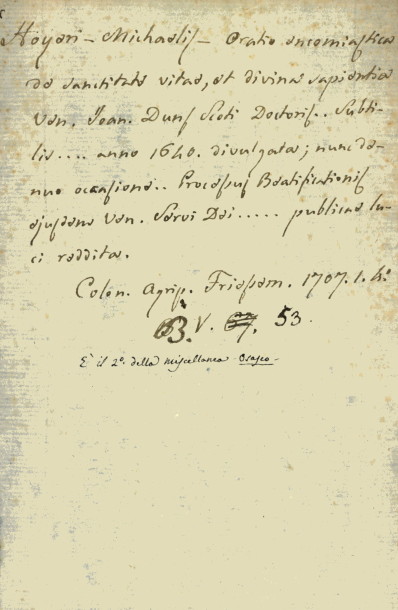 Hoyeri - Michaelis - Oratio encomiastica
de sanctitate vitae, et divina sapientia
Ven. Joan. Duns Scoti Doctoris.. Subti-
lis.... anno 1640. divulgata; nunc de-
nuo occasione.. Processus Beatificationis
ejusdem Ven. Servi Dei..... publicae lu-
ci reddita.
Colon. Agrip. Friessem. 1707. 1. 4.º
B. V. 53.
È il 2º. della miscellanea Osasco -